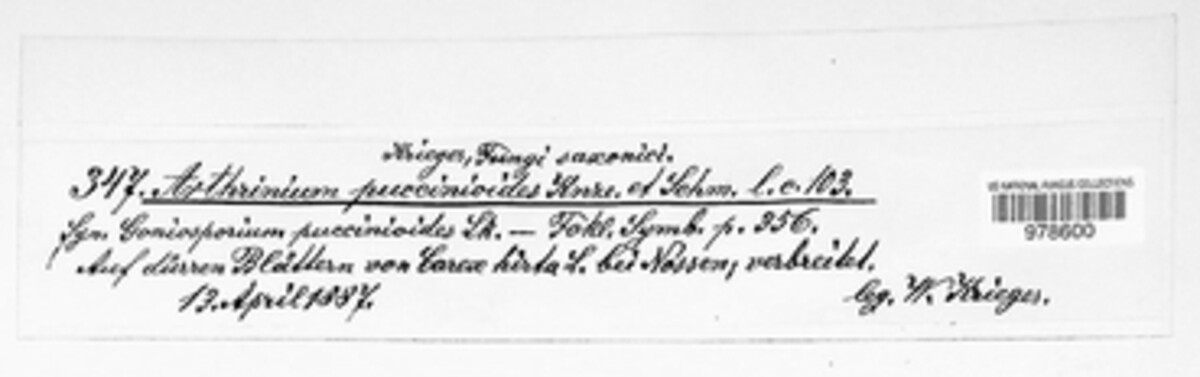 Krieger, Fungi saxonici.
347. Arthrinium puccinioides Knze. et Schm. l. c. 103.
Syn. Goniosporium puccinioides Lk. — Fckl. Symb. p. 356.
Auf dürren Blättern von Carex hirta L. bei Nossen, verbreitet.
13. April 1887.
leg. W. Krieger.
US NATIONAL FUNGUS COLLECTIONS
978600